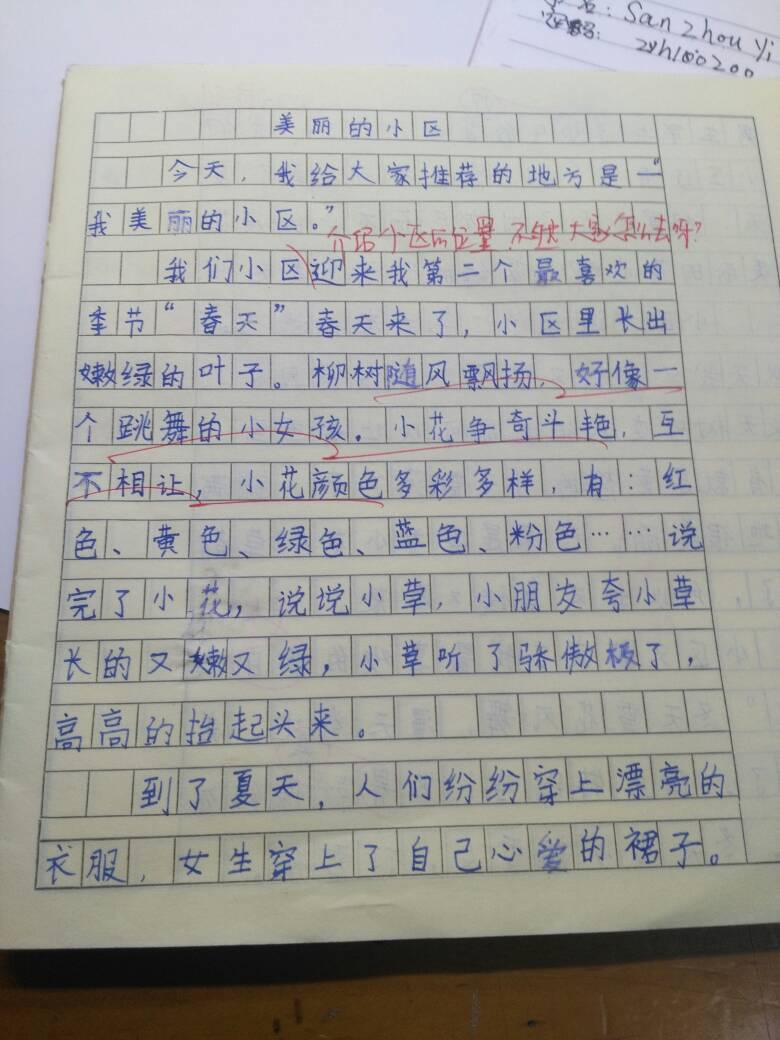 San Zhou Yi
美丽的小区
今天,我给大家推荐的地方是—“
我美丽的小区。”
介绍小区的位置,不然大家怎么去呀?
我们小区迎来我第二个最喜欢的
季节“春天”春天来了,小区里长出
嫩绿的叶子。柳树随风飘扬,好像一
个跳舞的小女孩。小花争奇斗艳,互
不相让,小花颜色多彩多样,有:红
色、黄色、绿色、蓝色、粉色……说
完了小花,说说小草,小朋友夸小草
长的又嫩又绿,小草听了骄傲极了,
高高的抬起头来。
到了夏天,人们纷纷穿上漂亮的
衣服,女生穿上了自己心爱的裙子。